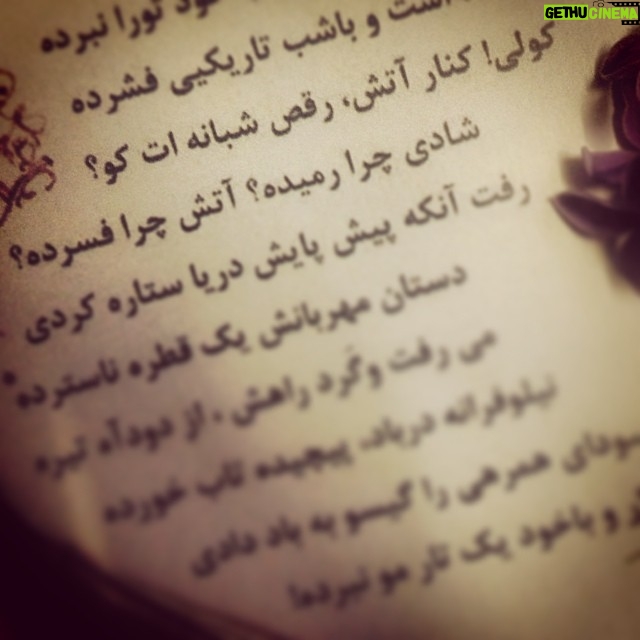 GETHUCINEMA
خود تورا نبرده
است و باشب تاریکیی فشرده
کولی! کنار آتش، رقص شبانه ات کو؟
شادی چرا رمیده؟ آتش چرا فسرده؟
رفت آنکه پیش پایش دریا ستاره کردی
دستان مهربانش یک قطره ناسترده
می رفت و گَرد راهش، از دودآه تیره
نیلوفرانه درباد، پیچیده تاب خورده
سودای همرهی را گیسو به باد دادی
و باخود یک تار مو نبرده!